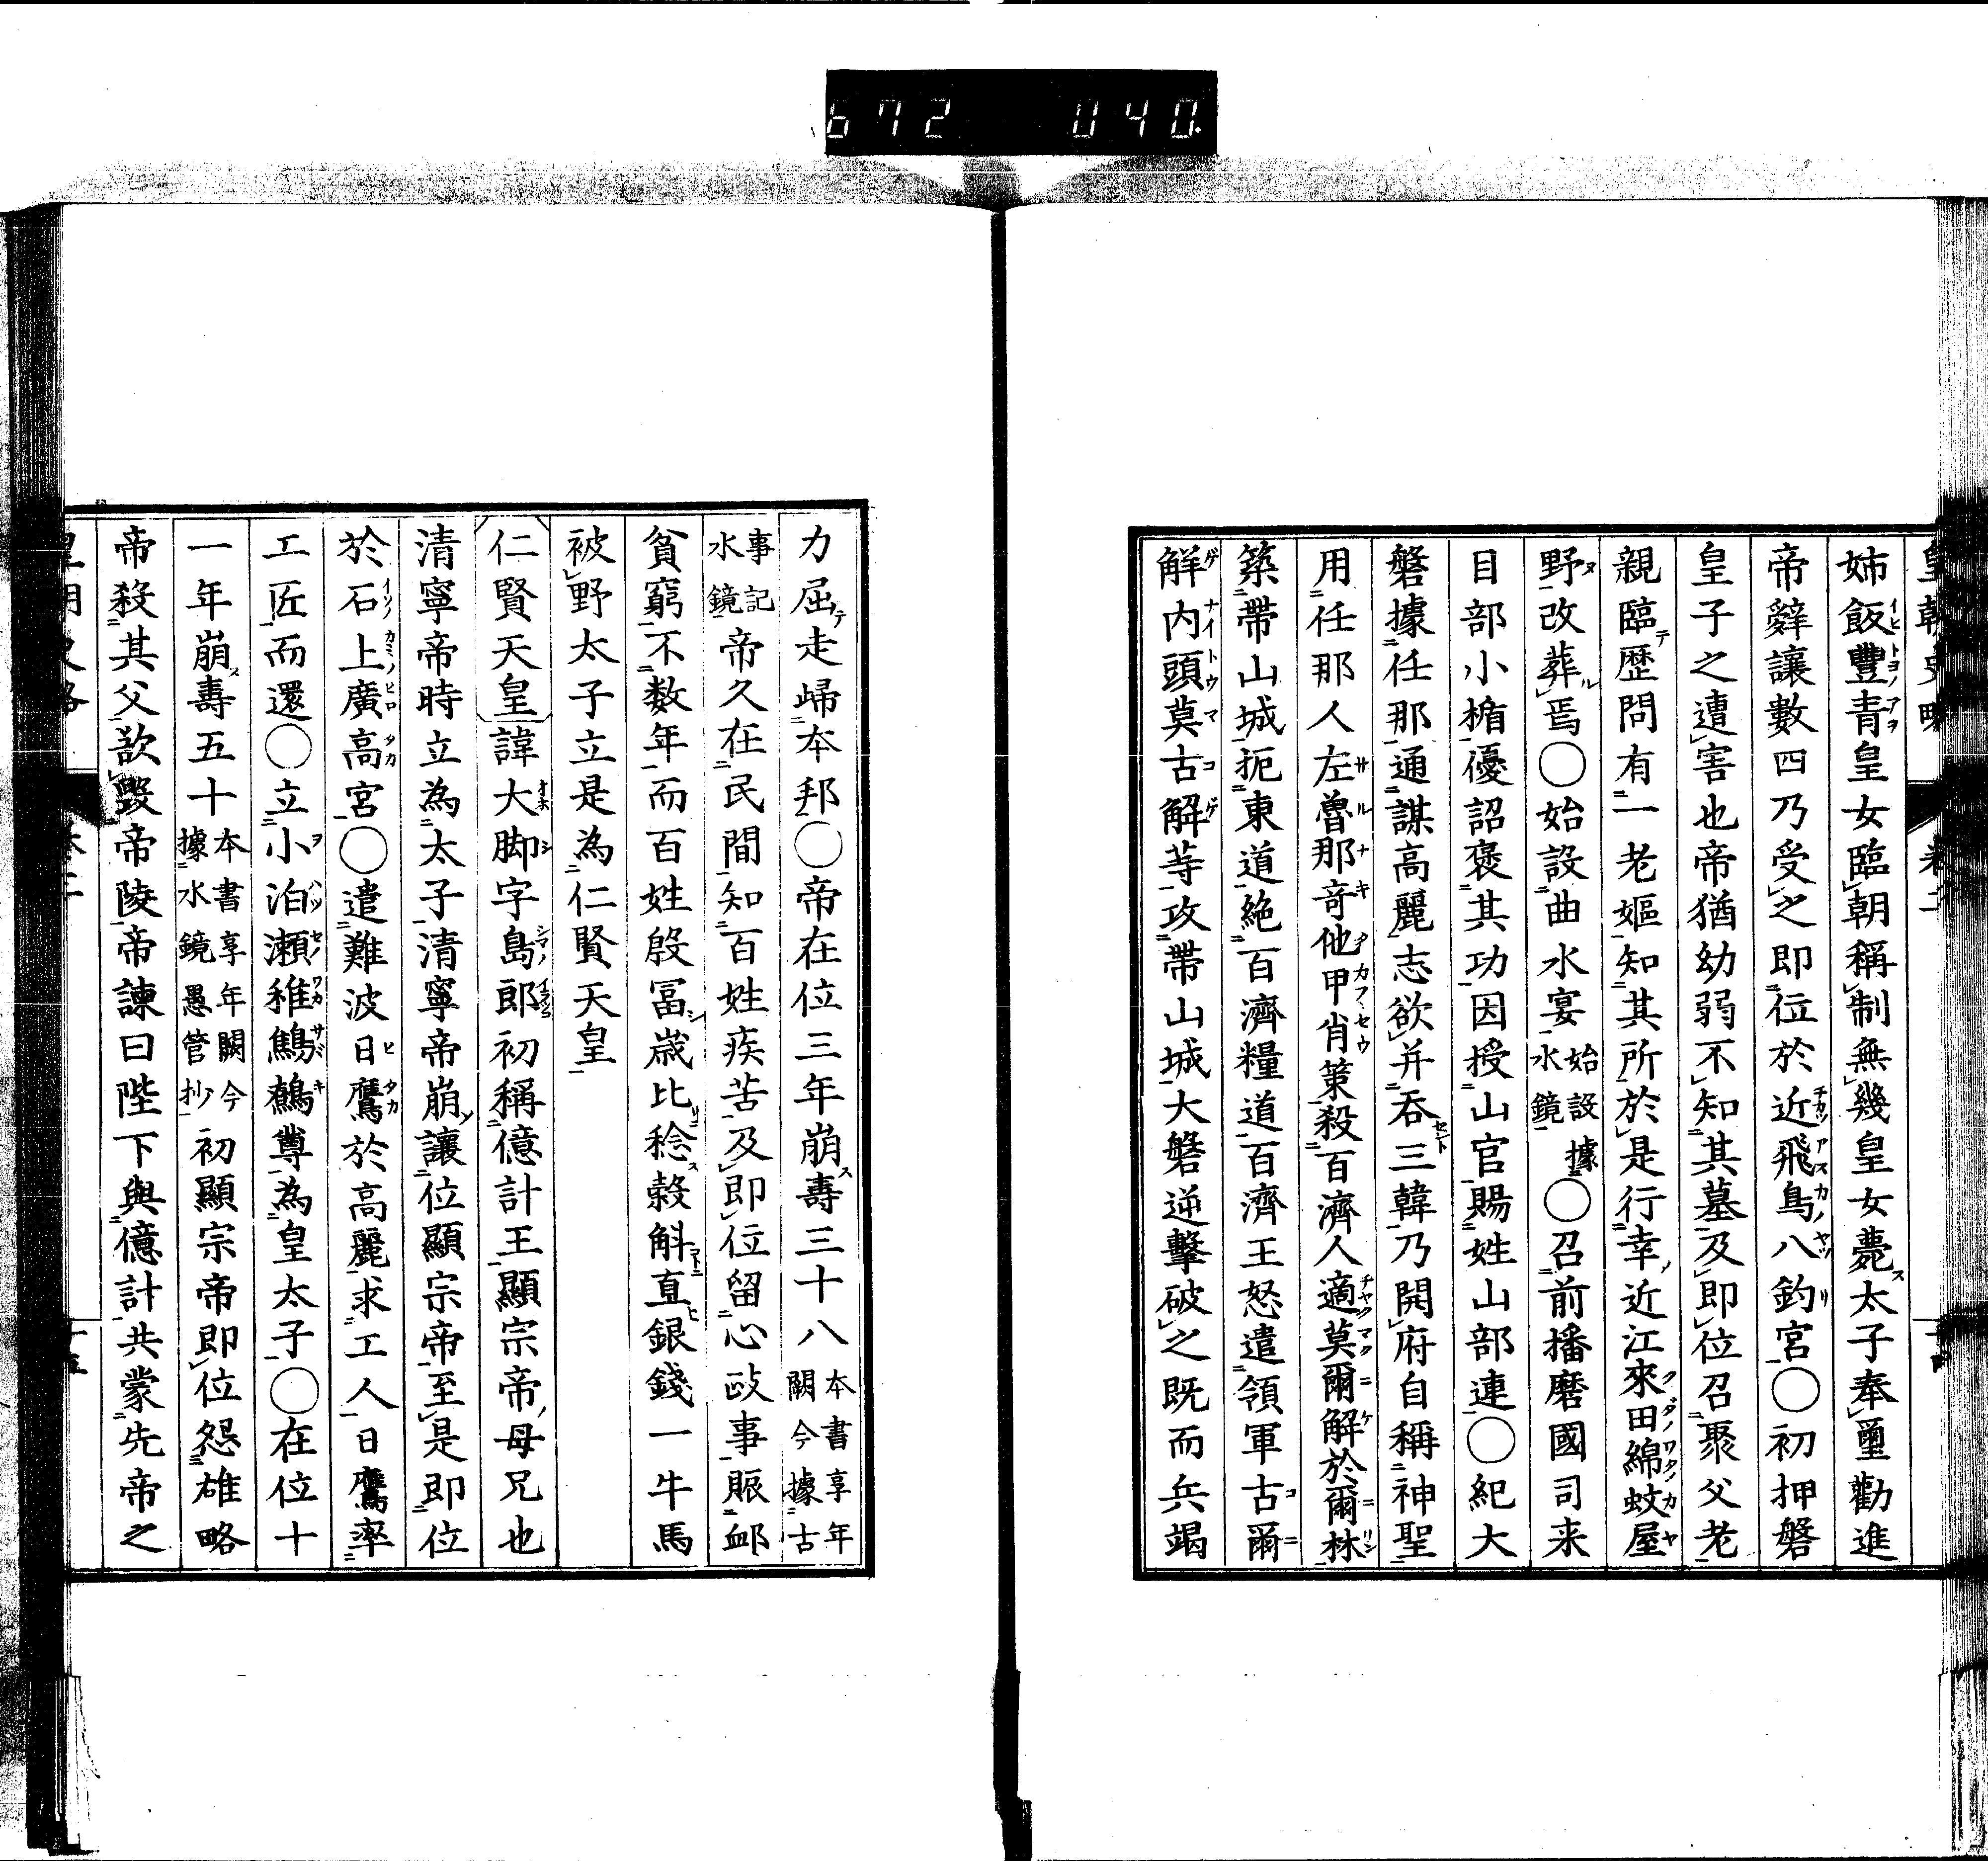 672 040.
皇朝史略 卷二 十四
姉飯豐青皇女臨朝稱制無幾皇女薨太子奉璽勸進
帝辭讓數四乃受之即位於近飛鳥八釣宮○初押磐
皇子之遭害也帝猶幼弱不知其墓及即位召聚父老
親臨歴問有一老嫗知其所於是行幸近江來田綿蚊屋
野改葬焉○始設曲水宴始設據水鏡○召前播磨國司来
目部小楯優詔褒其功因授山官賜姓山部連○紀大
磐據任那通謀高麗志欲并吞三韓乃開府自稱神聖
用任那人左魯那奇他甲肖策殺百濟人適莫爾解於爾林
築帶山城扼東道絶百濟糧道百濟王怒遣領軍古爾
解内頭莫古解等攻帶山城大磐逆擊破之既而兵竭
力屈走歸本邦○帝在位三年崩壽三十八本書享年闕今據古
事記水鏡帝久在民間知百姓疾苦及即位留心政事賑䘏
貧窮不数年而百姓殷冨歳比稔穀斛直銀錢一牛馬
被野太子立是為仁賢天皇
仁賢天皇諱大脚字島郎初稱億計王顯宗帝母兄也
清寧帝時立為太子清寧帝崩讓位顯宗帝至是即位
於石上廣高宮○遣難波日鷹於高麗求工人日鷹率
工匠而還○立小泊瀬稚鷦鷯尊為皇太子○在位十
一年崩壽五十本書享年闕今據水鏡愚管抄初顯宗帝即位怨雄略
帝殺其父欲毀帝陵帝諫曰陛下與億計共蒙先帝之